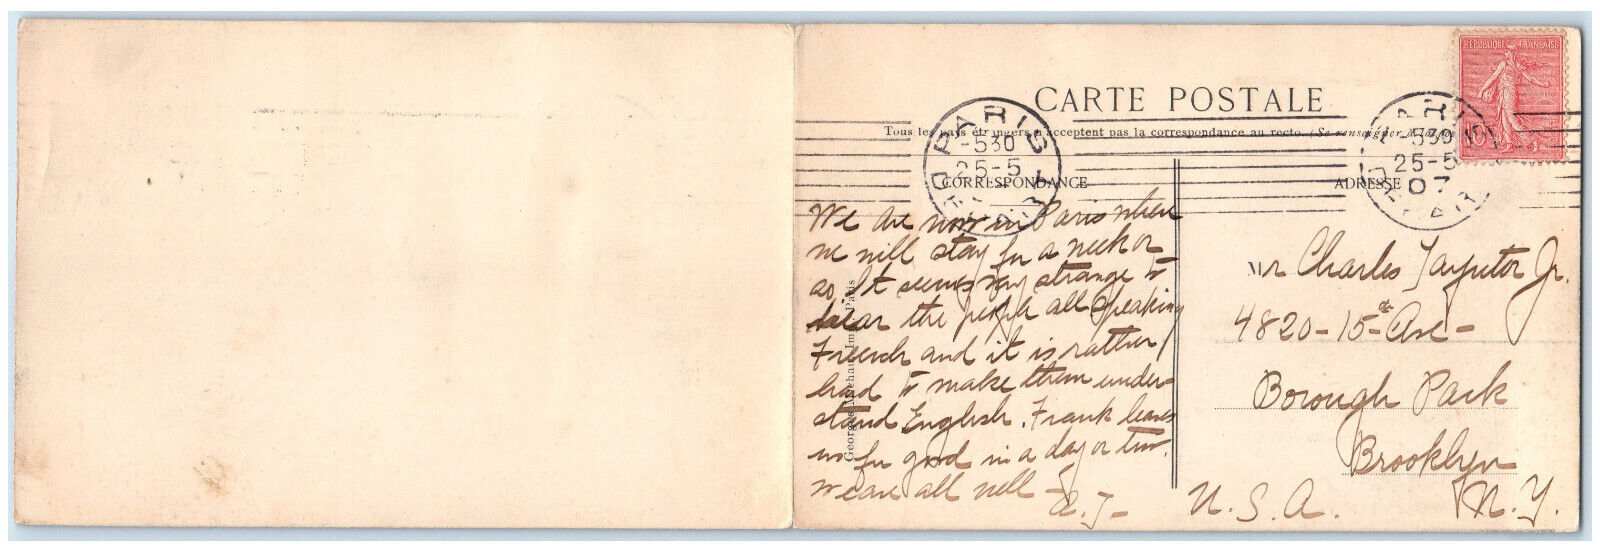 CARTE POSTALE
Tous les pays étrangers n'acceptent pas la correspondance au recto. (Se renseigner à la poste)
REPUBLIQUE FRANÇAISE
10
PARIS
-530
25-5
07
DEPART
PARIS
-530
25-5
07
DEPART
CORRESPONDANCE
ADRESSE
We are now in Paris where
we will stay for a week or
so. It seems very strange to
hear the people all speaking
French and it is rather
hard to make them under-
stand English. Frank leaves
us for good in a day or two.
we are all well
Mr Charles Jr.
4820-15th Ave-
Borough Park
Brooklyn
U.S.A. N.Y.
Imp. Paris